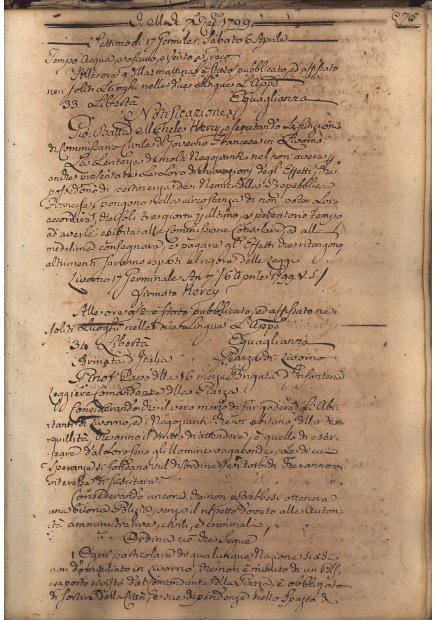 1799
275
Settimo di 17 Germile, Sabato 6 Aprile
Tempo d'acqua
Alle ore 9 di mattina è stato pubblicato, ed affissato
nei soliti Luoghi nelle due Lingue L'App.o
33 Libertà Eguaglianza
Notificazione
Gio. Batta Michele Hercy esercitando Le funzioni
di Commissario Civile del Governo Francese in Livorno
La Lentezza di molti Negozianti nel non avere
presentate Le Loro dichiarazioni degl'Effetti, che
possedono di pertinenza de Nemici della Repubblica
Francese, pongono nella circostanza di non poter Loro
accordare, che soli tre giorni ultimo, e perentorio tempo
ad averle esibite alla Commissione Consolare, ed alle
medesime consegnare, e pagare gl'Effetti che ritengono
altrimenti saranno esposti al rigore delle Leggi
Livorno 17 Germinale An 7 / 6 Aprile 1799. V.S./
Firmato Hercy
Alle ore è stato pubblicato, ed affissato nei
soliti Luoghi nelle due Lingue L'App.o
34 Libertà Eguaglianza
Armata d'Italia Piazza di Livorno
Pinot Capo della 16 mezza Brigata d'Infanteria
Leggiera Comandante della Piazza
Considerando che il vero mezzo di far godere gl'Abi-
tanti di Livorno, ed i Negozianti che vi abitano, della tran-
quillità che hanno il dritto di attendere, è quello di
da loro sono gl'Uomini vagabondi, Le di cui
speranze si fondano sul disordine, che hanno
interesse di suscitare
Considerando ancora che non potrebbesi ottenere
una buona Polizia, senza il rispetto dovuto alle Autori-
tà amministrative, civili, e criminali;
Ordina ciò che segue
1 Ogni particolare di qualunque Nazione siasi
non domiciliato in Livorno che non è munito di un Pas-
saporto vistato dal Comandante della Piazza, è obbligato
di sortire dalla Città, e sue dipendenze nello spazio di